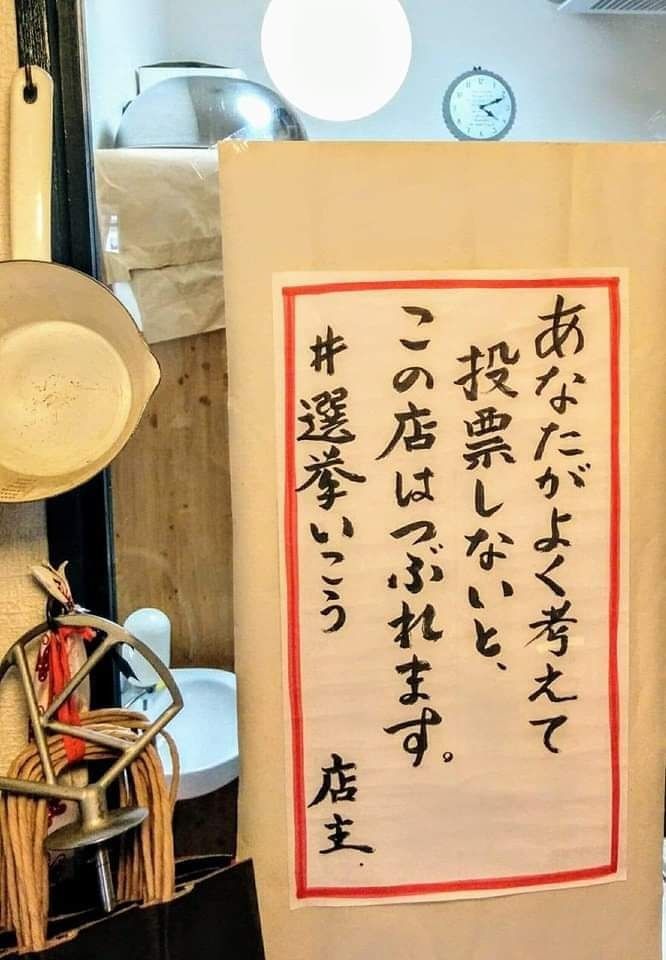 あなたがよく考えて
投票しないと、
この店はつぶれます。
#選挙いこう
店主.